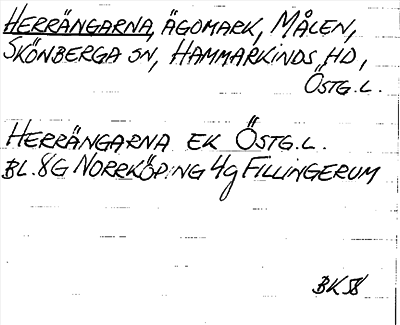 HERRÄNGARNA, ÄGOMARK, MÅLEN,
SKÖNBERGA SN, HAMMARKINDS HD,
ÖSTG.L.
HERRÄNGARNA EK ÖSTG.L.
BL. 8G NORRKÖPING 4g FILLINGERUM
BK58